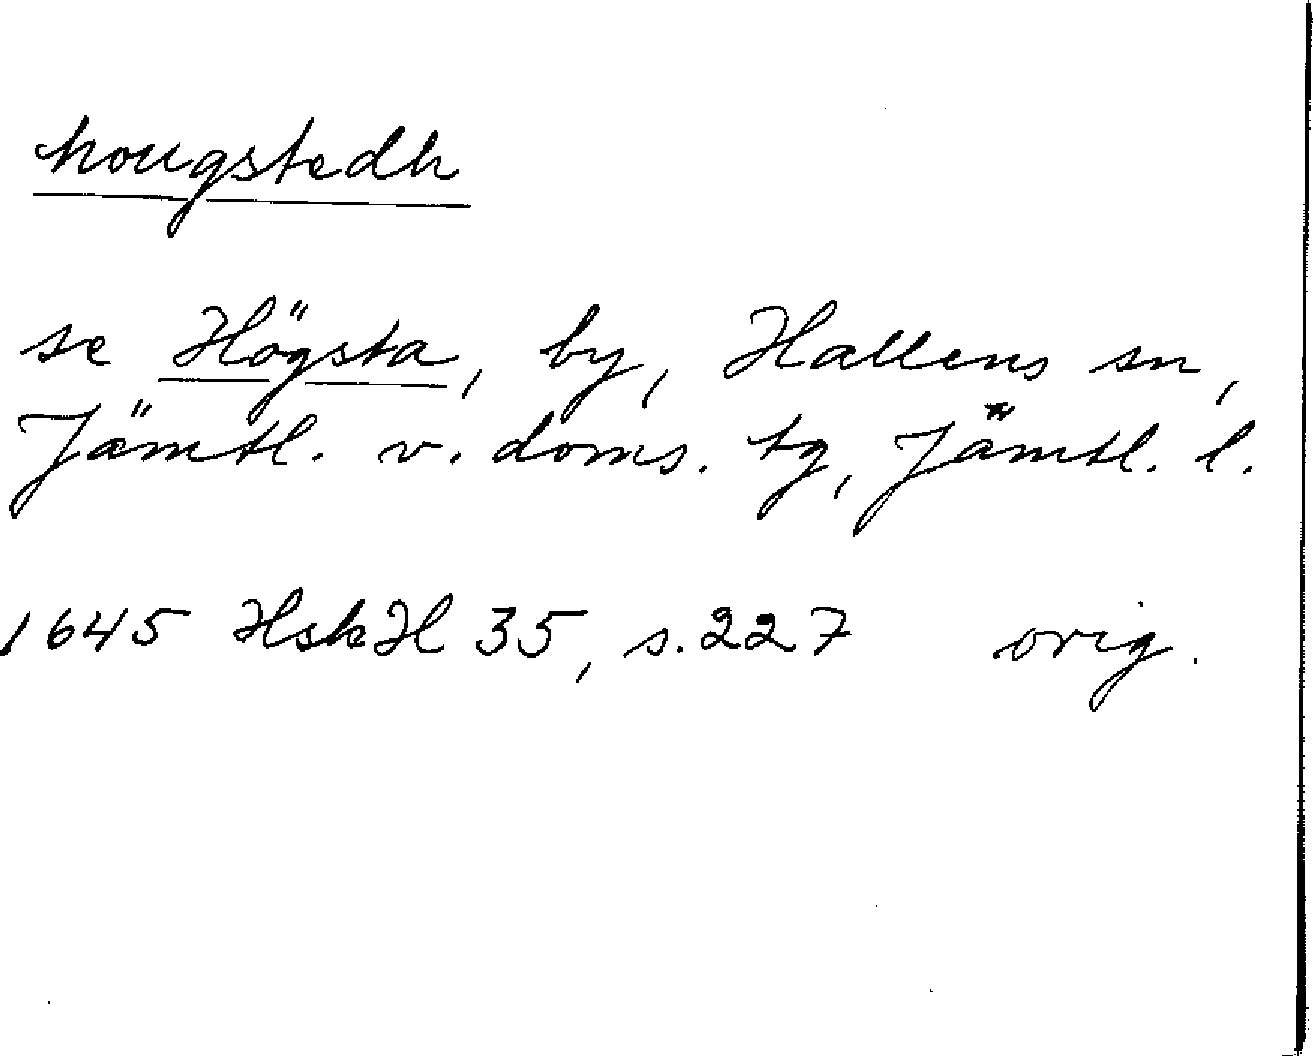 hougstedh
se Högsta, by, Hallens sn,
Jämtl. v. doms. tg, Jämtl. l.
1645 HskH 35, s. 227 orig.